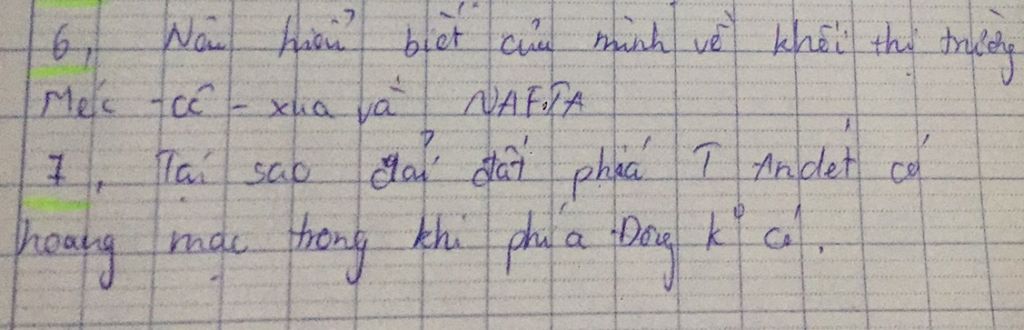 6, Nêu hiểu biết của mình về khối thị trường
Mec - cô - xua và NAFTA
7, Tại sao dải đất phía T Andet có
hoang mạc trong khi phía Đông k° có.